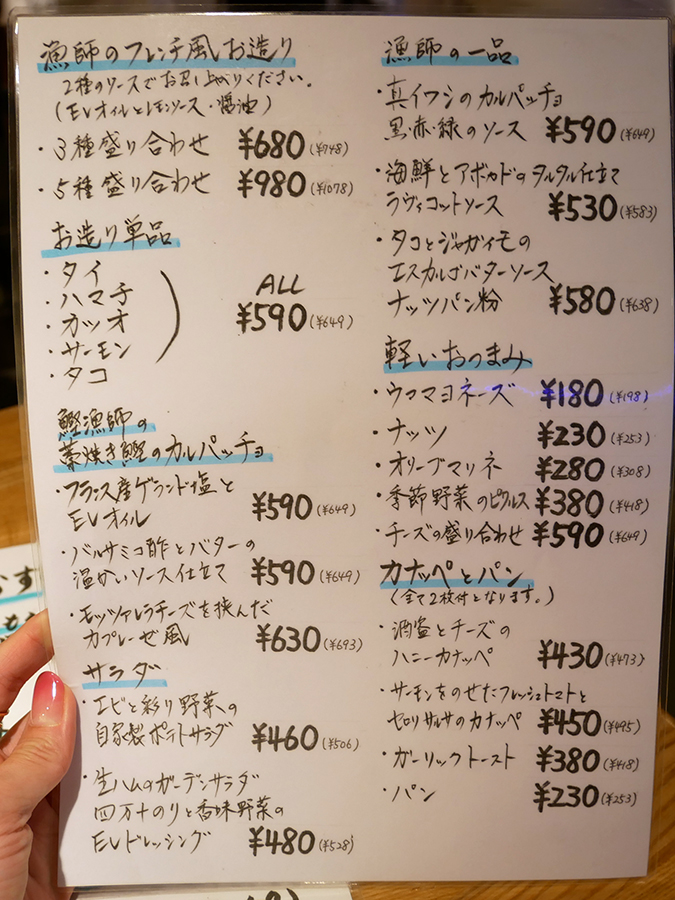 漁師のフレンチ風お造り
2種のソースでお召し上がりください。
(EVオイルとレモンソース・醤油)
・3種盛り合わせ ¥680(¥748)
・5種盛り合わせ ¥980(¥1078)
お造り単品
・タイ
・ハマチ
・カツオ
・サーモン
・タコ
ALL
¥590(¥649)
鰹漁師の
藁焼き鰹のカルパッチョ
・フランス産ゲランド塩と
EVオイル ¥590(¥649)
・バルサミコ酢とバターの
温かいソース仕立て ¥590(¥649)
・モッツァレラチーズを挟んだ
カプレーゼ風 ¥630(¥693)
サラダ
・エビと彩り野菜の
自家製ポテトサラダ ¥460(¥506)
・生ハムのガーデンサラダ
四万十のりと香味野菜の
EVドレッシング ¥480(¥528)
漁師の一品
・真イワシのカルパッチョ
黒・赤・緑のソース ¥590(¥649)
・海鮮とアボカドのタルタル仕立て
ラヴィゴットソース ¥530(¥583)
・タコとジャガイモの
エスカルゴバターソース
ナッツパン粉 ¥580(¥638)
軽いおつまみ
・ウフマヨネーズ ¥180(¥198)
・ナッツ ¥230(¥253)
・オリーブマリネ ¥280(¥308)
・季節野菜のピクルス ¥380(¥418)
・チーズの盛り合わせ ¥590(¥649)
カナッペとパン
(全て2枚付となります。)
・酒盗とチーズの
ハニーカナッペ ¥430(¥473)
・サーモンをのせたフレッシュトマトと
セロリサルサのカナッペ ¥450(¥495)
・ガーリックトースト ¥380(¥418)
・パン ¥230(¥253)